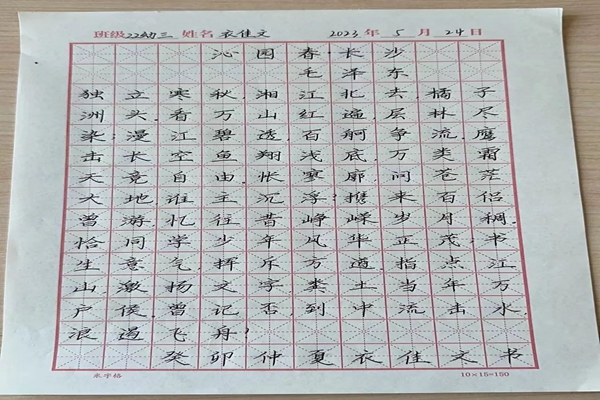 班级22幼三 姓名 衣佳文 2023 年 5 月 24 日
沁园春·长沙
毛泽东
独立寒秋,湘江北去,橘子
洲头.看万山红遍,层林尽
染;漫江碧透,百舸争流.鹰
击长空,鱼翔浅底,万类霜
天竞自由.怅寥廓,问苍茫
大地,谁主沉浮?携来百侣
曾游,忆往昔峥嵘岁月稠.
恰同学少年,风华正茂;书
生意气,挥斥方遒.指点江
山,激扬文字,粪土当年万
户侯.曾记否,到中流击水,
浪遏飞舟?
癸卯仲夏衣佳文书
米字格 10×15=150